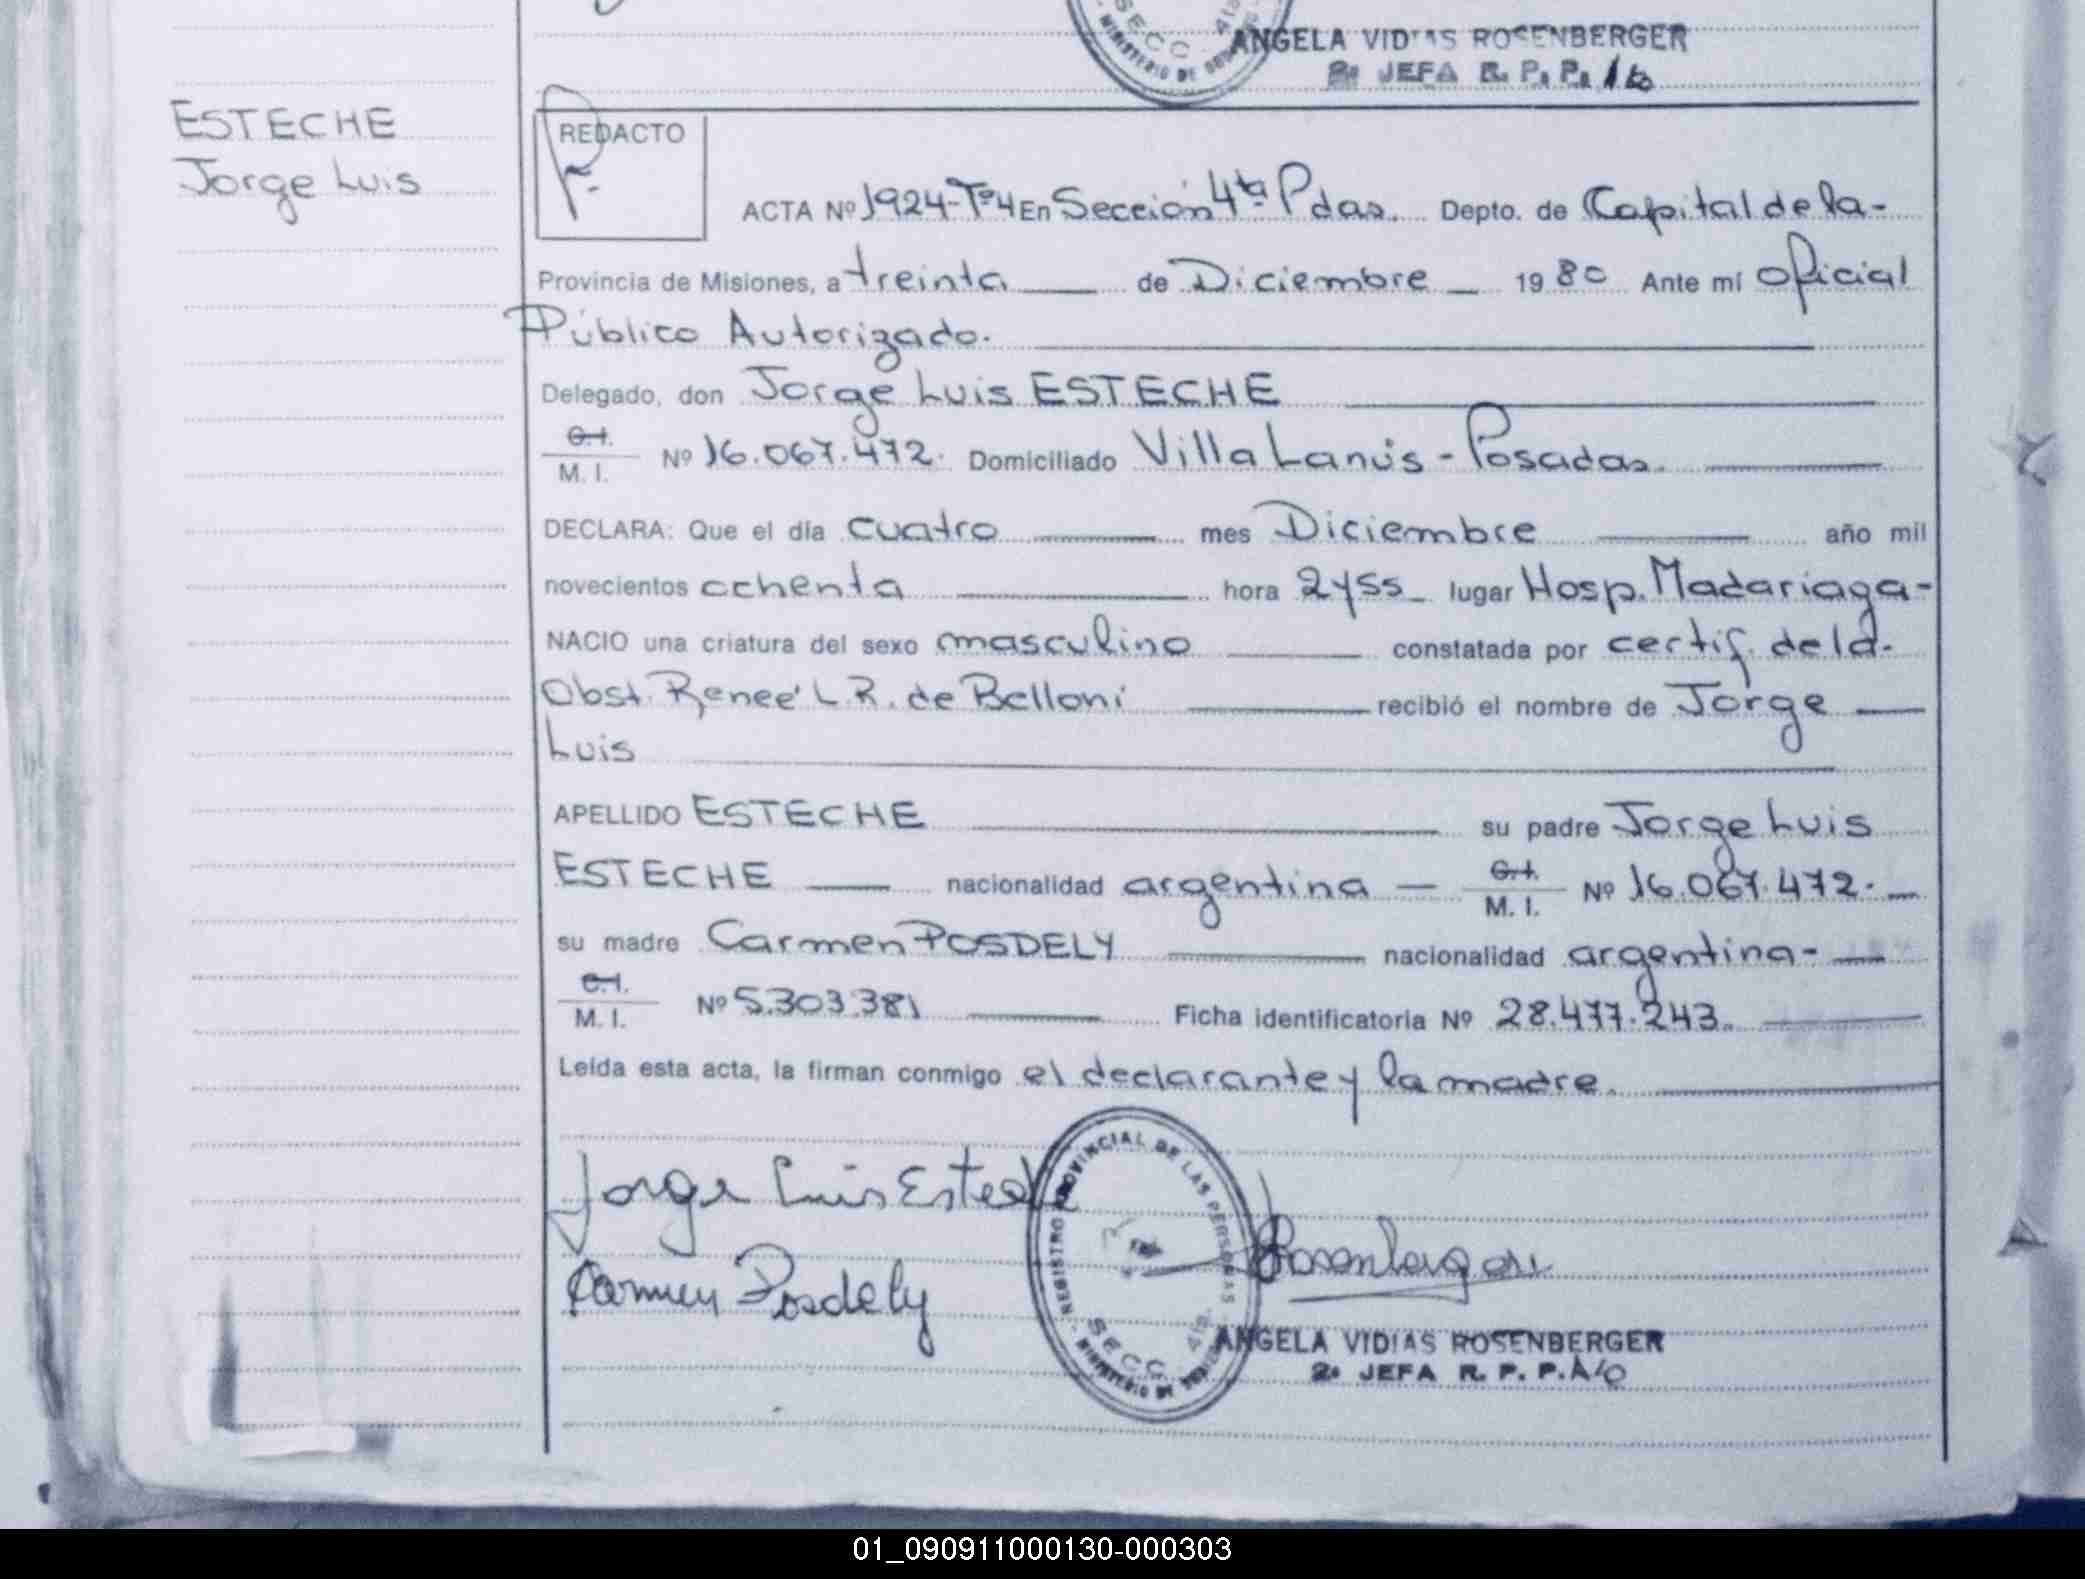 ANGELA VIDIAS ROSENBERGER
2ª JEFA R. P. P.
ESTECHE
Jorge Luis
REDACTO
ACTA Nº 1924-Tº4 En Sección 4ta Pdas. Depto. de Capital de la-
Provincia de Misiones, a treinta de Diciembre 1980 Ante mí Oficial
Público Autorizado.
Delegado, don Jorge Luis ESTECHE
C.I.
M. I. Nº 16.067.472. Domiciliado Villa Lanús - Posadas.
DECLARA: Que el día cuatro mes Diciembre año mil
novecientos ochenta hora 2y55 lugar Hosp. Madariaga-
NACIO una criatura del sexo masculino constatada por certif. de la.
Obst. Reneé L.R. de Belloni recibió el nombre de Jorge
Luis
APELLIDO ESTECHE su padre Jorge Luis
ESTECHE nacionalidad argentina C.I.
M. I. Nº 16.067.472.
su madre Carmen POSDELY nacionalidad argentina-
C.I.
M. I. Nº 5.303.381 Ficha identificatoria Nº 28.477.243.
Leída esta acta, la firman conmigo el declarante y la madre.
Jorge Luis Esteche
Carmen Posdely
Rosenberger
REGISTRO PROVINCIAL DE LAS PERSONAS
SECC. 4ta.
MINISTERIO DE GOBIERNO
ANGELA VIDIAS ROSENBERGER
2ª JEFA R. P. P. A/C
01_090911000130-000303